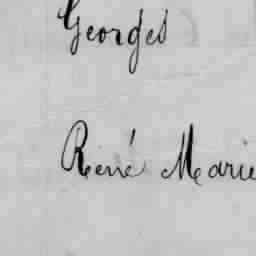 Georges
René Marie